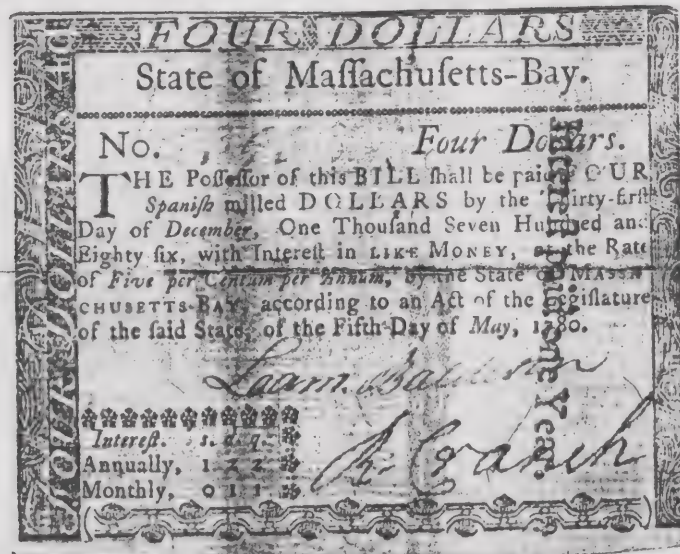 FOUR DOLLARS
State of Maſſachuſetts-Bay.
No. Four Dollars.
THE Poſſeſſor of this BILL ſhall be paid FOUR
Spaniſh milled DOLLARS by the Thirty-firſt
Day of December, One Thouſand Seven Hundred and
Eighty ſix, with Intereſt in LIKE MONEY, at the Rate
of Five per Centum per Annum, by the State of MASSA-
CHUSETTS-BAY, according to an Act of the Legiſlature
of the ſaid State, of the Fifth Day of May, 1780.
Loam. Baldwin
R. Cranch
Intereſt. s. d. q.
Annually, 1 2 2
Monthly, 0 1 1
FOUR DOLLARS
Intereſt paid one Year.